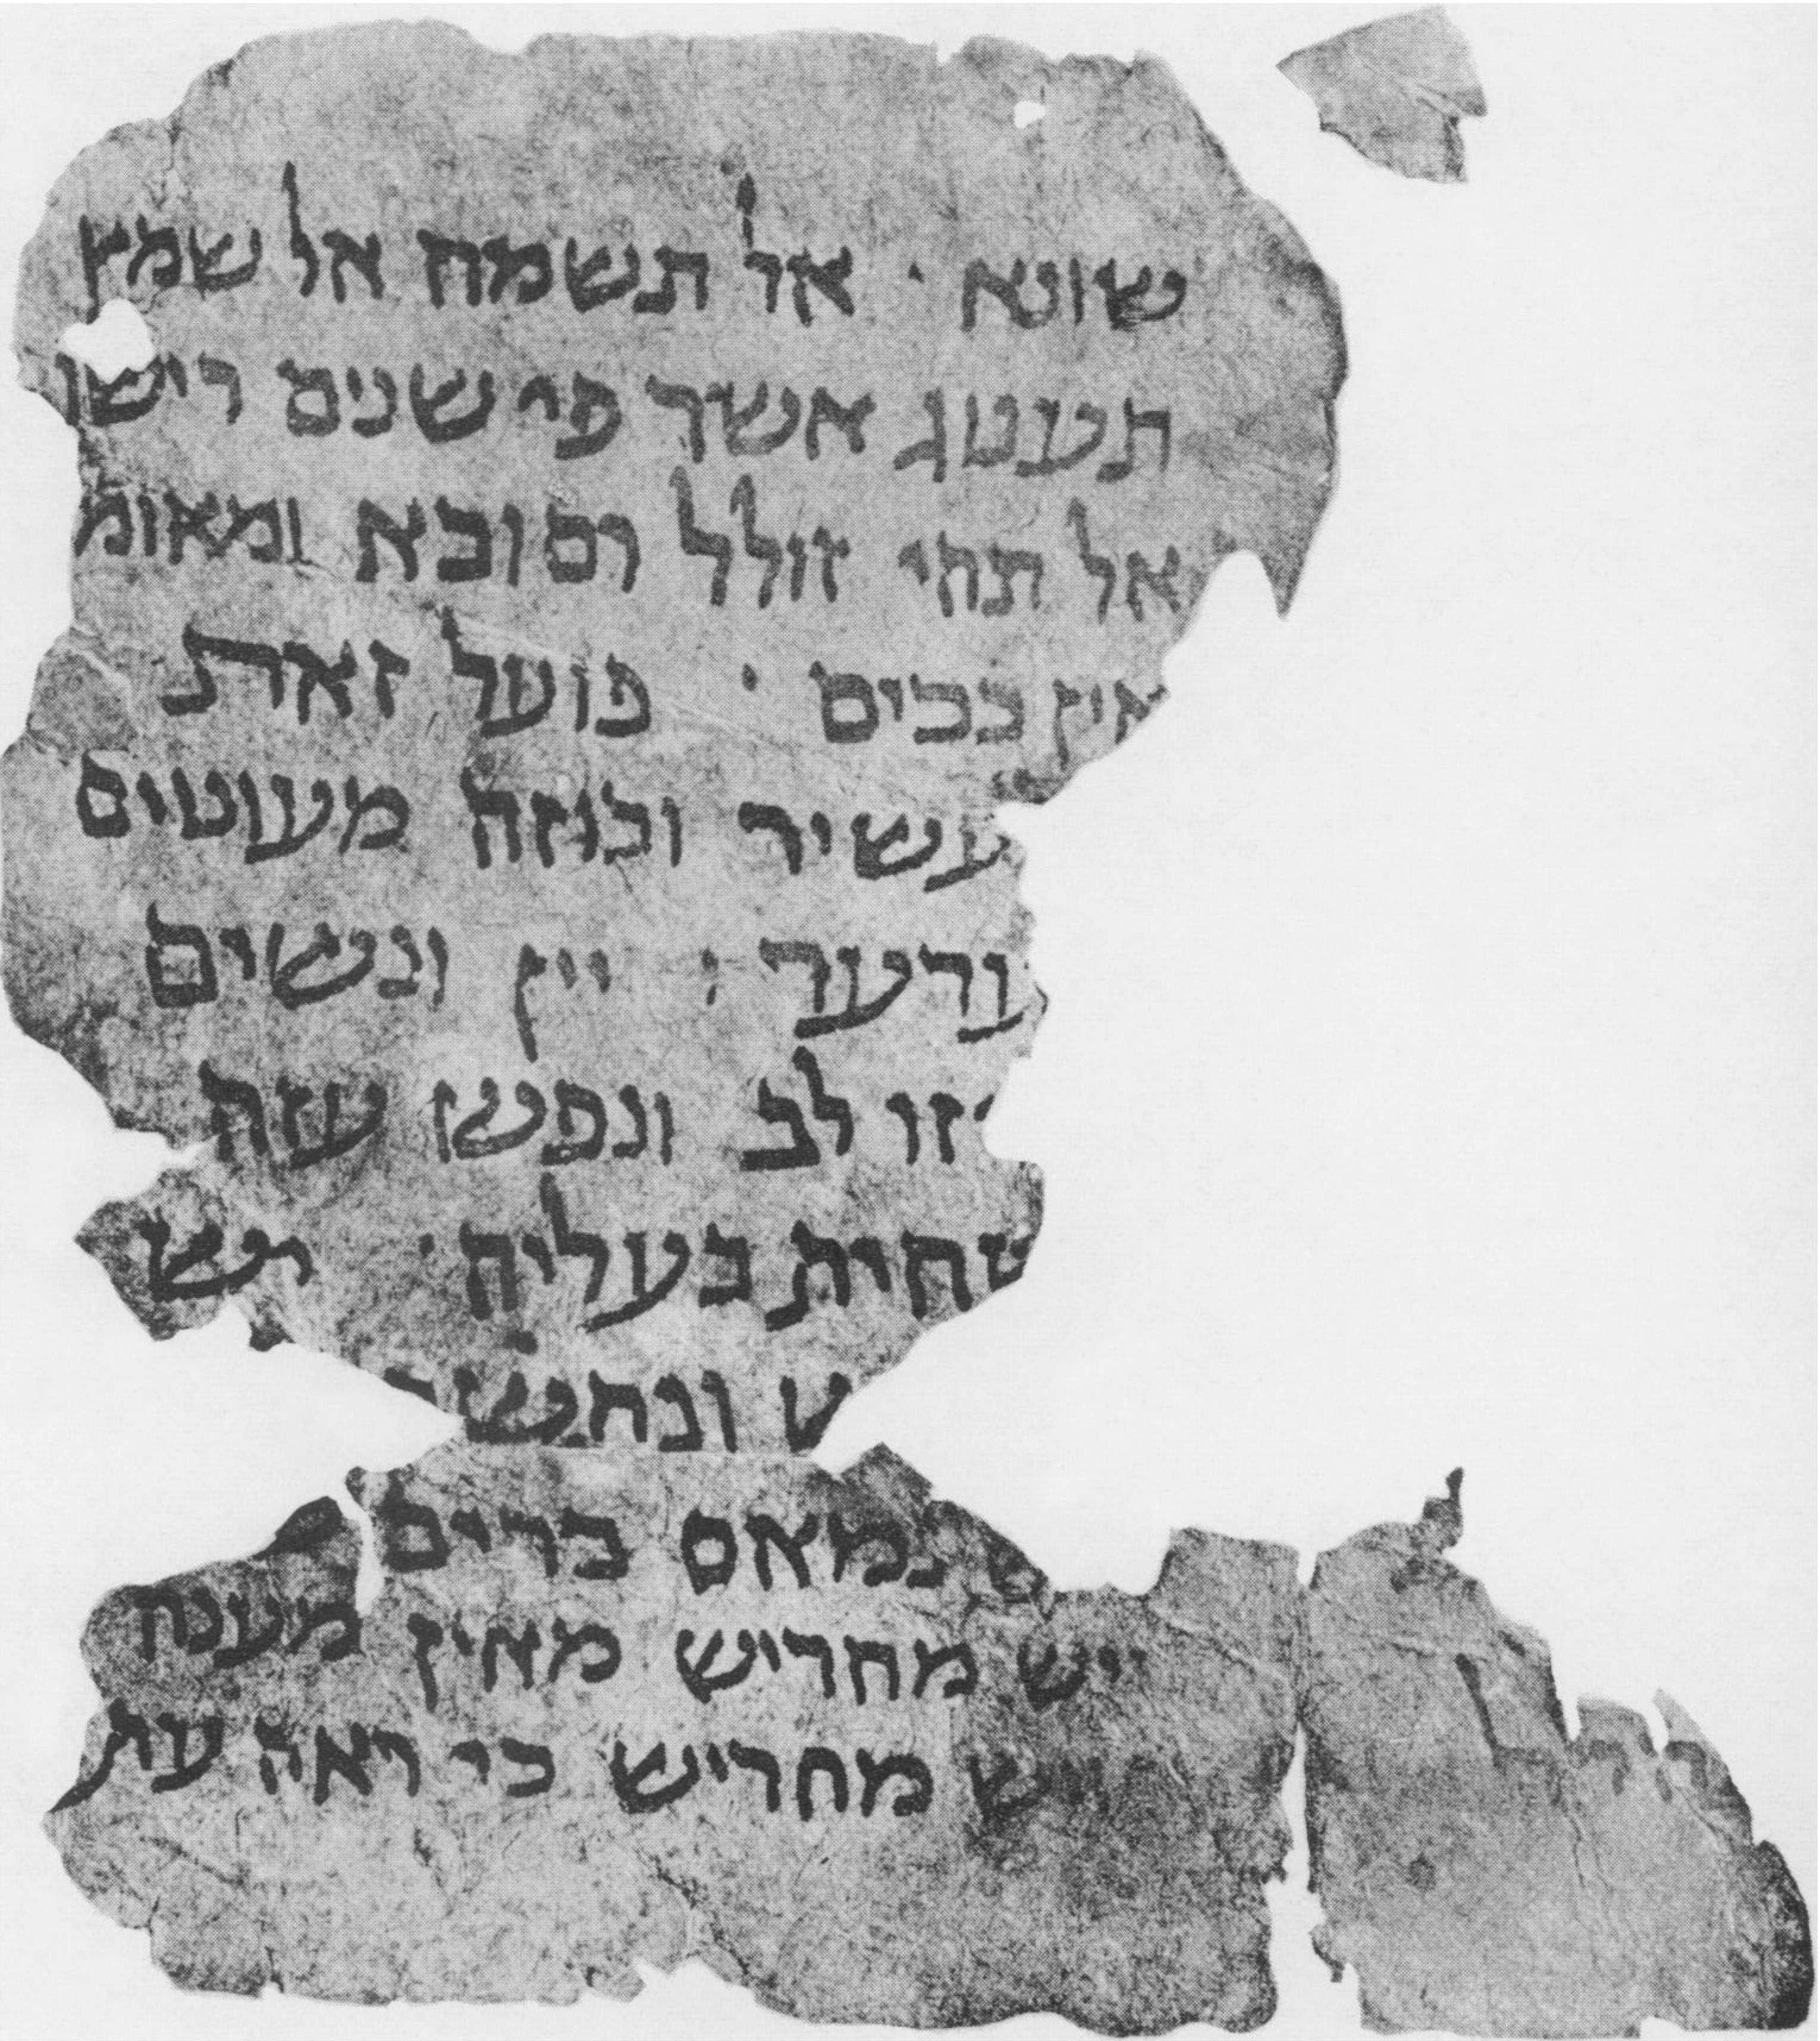 שונא · אל תשמח אל שמץ
תענוג אשר פי שנים רישו
אל תהי זולל וסובא ומאומ
אין בכיס · פועל זאת
עשיר ובוזה מעוטים
ערער : יין ונשים
יזו לב ונפש עזה
שחית בעליה · יש
ש ונחש
ש נמאס ברים
יש מחריש מאין מענה
ש מחריש כי ראה עת